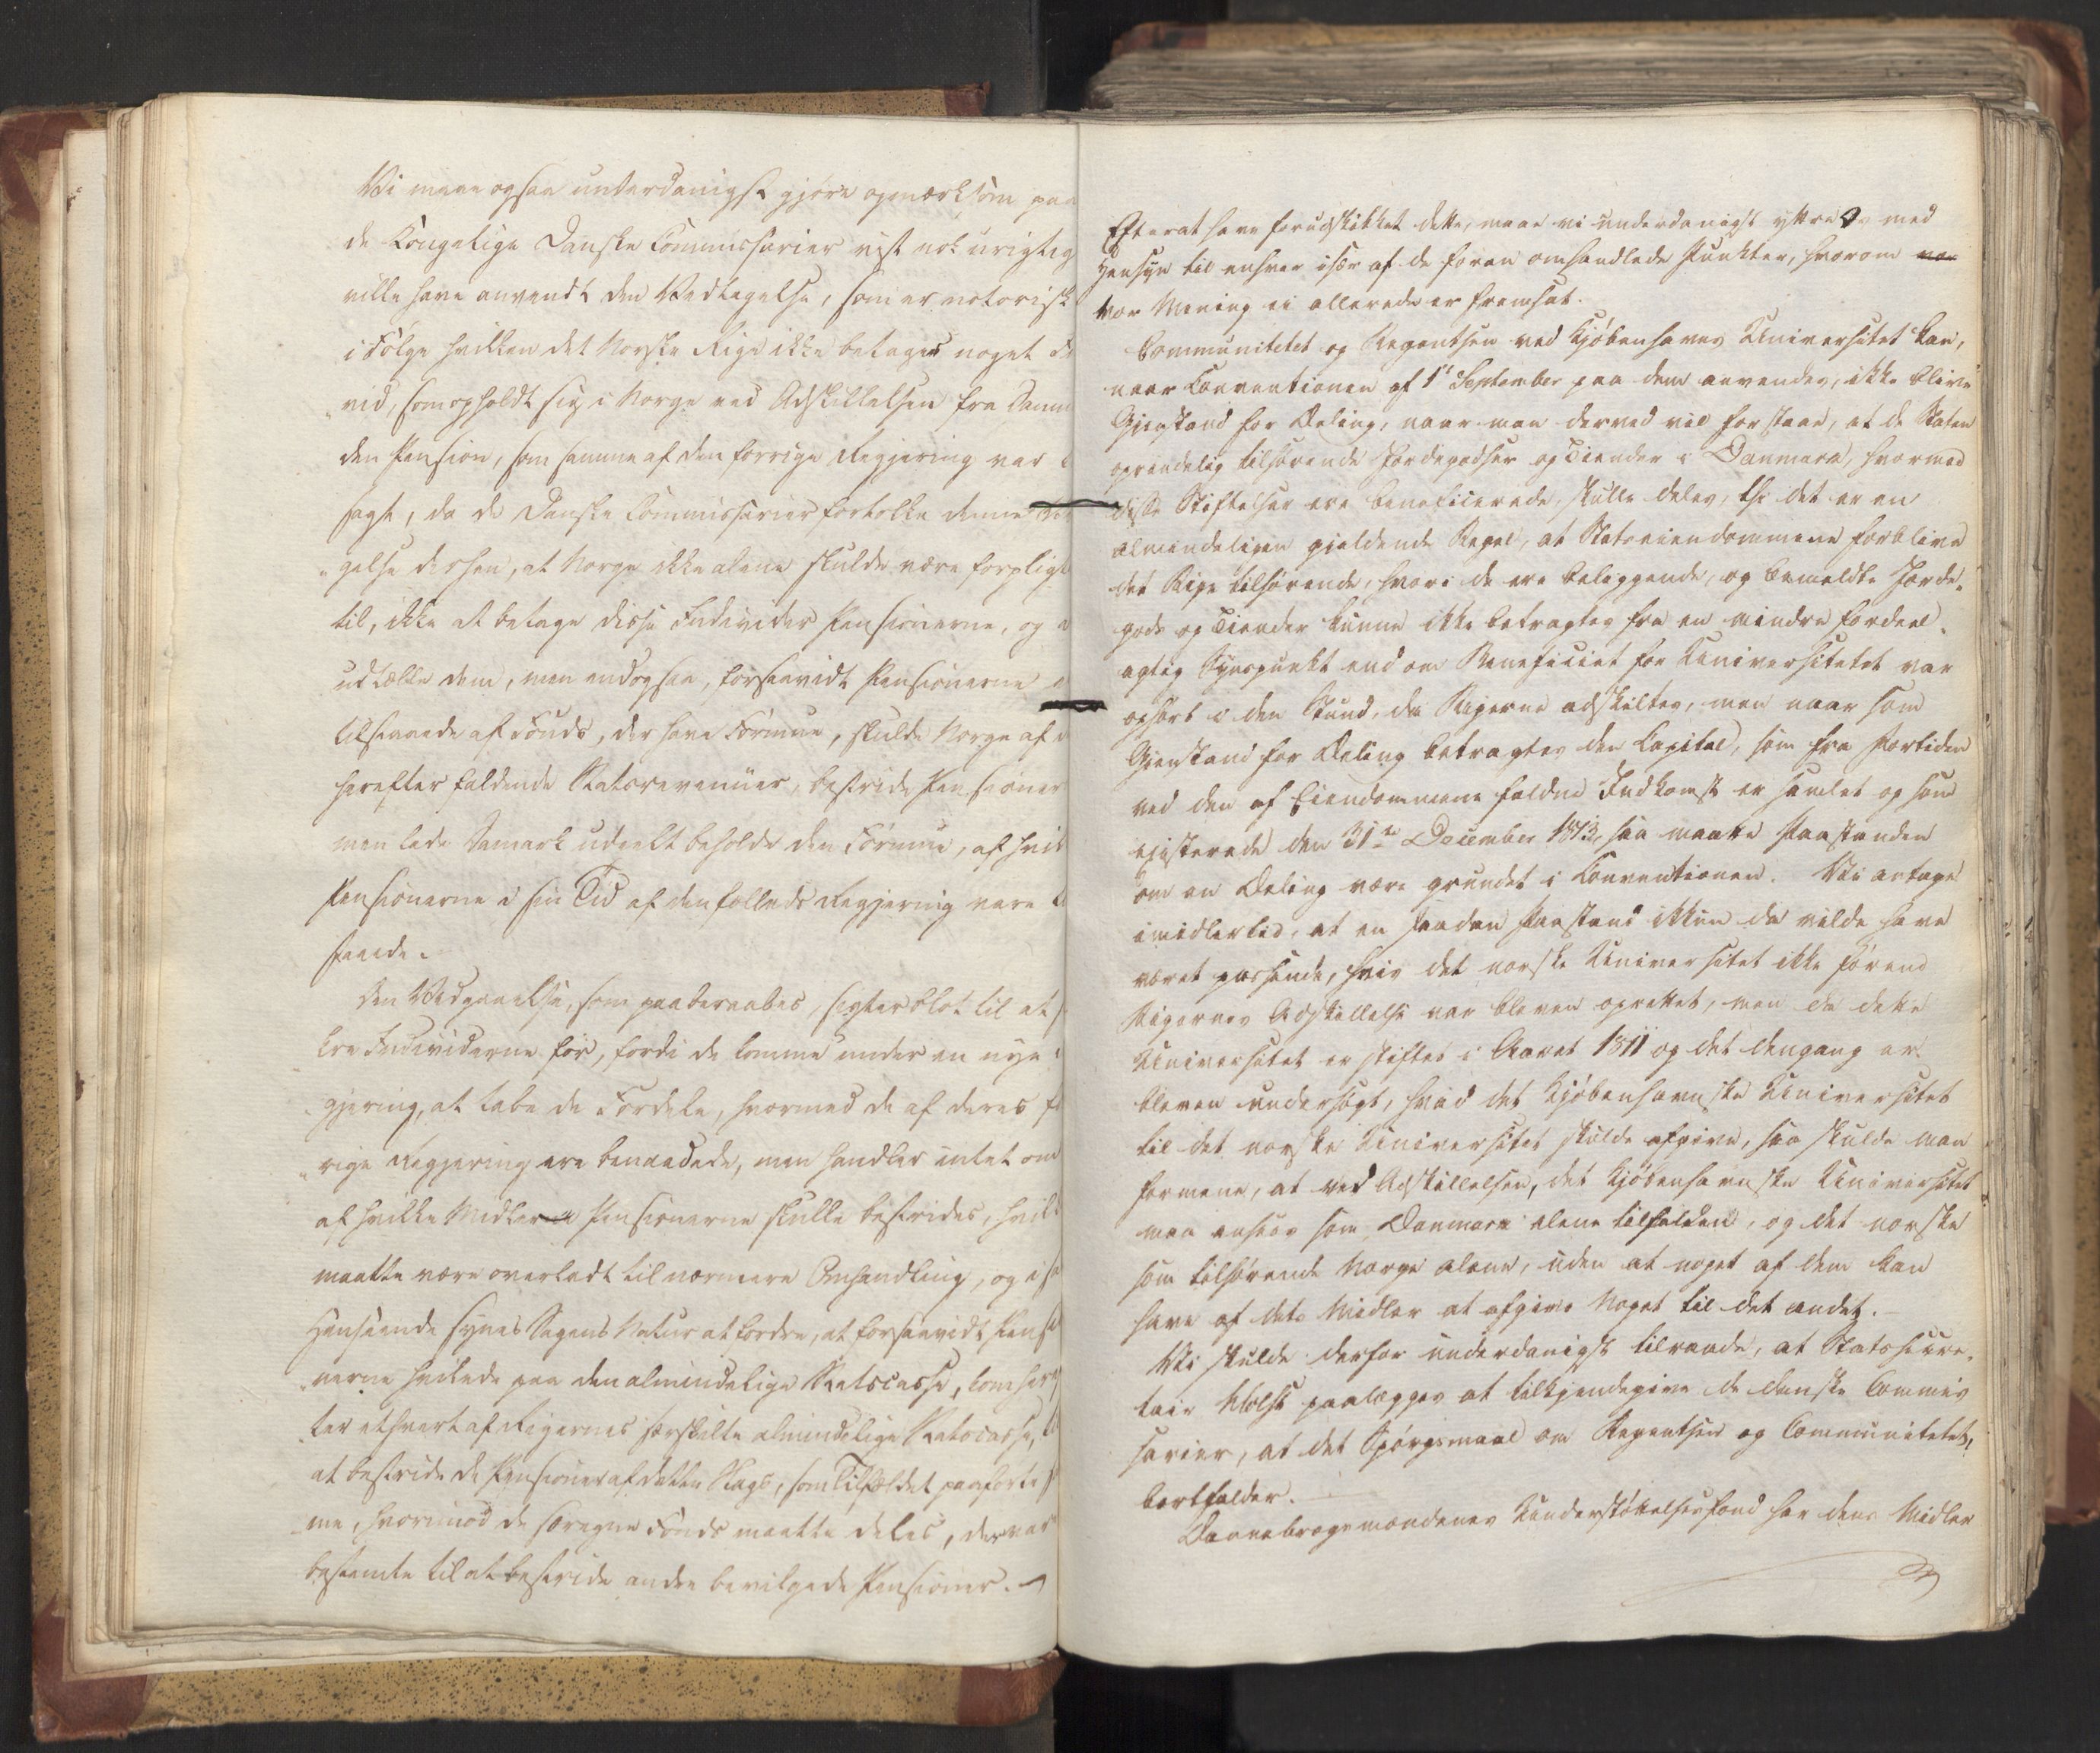 Vi maae ogsaa underdanigst gjøre opmærksom paa
de Kongelige Danske Commissarier vist nok urigtig
ville have anvendt den Vedtagelse, som er notorisk
i Følge hvilken det Norske Rige ikke betager noget
vid, som opholdt sig i Norge ved Adskillelsen fra Danm
den Pension, som samme af den forrige Regjering var
sagt, da de Danske Commissarier fortolke denne
"gelse derhen, at Norge ikke alene skulde være forpligt
til, ikke at betage disse Individer Pensionerne, og
udtælle dem, men endogsaa, forsaavidt Pensionerne
tilstaaede af Fonds, der have Formue, skulde Norge af
herefter faldende Statsrevenüer, bestride Pensioner
men lade Danmark udeelt beholde den Formue, af hvil
Pensionerne i sin Tid af den fælleds Regjering vare
staaede.
Den Vedtagelse, som paaberaabes, sigter blot til at
kre Individerne for, fordi de komme under en nye
"gjering, at tabe de Fordele, hvormed de af deres
"rige Regjering ere benaadede, men handler intet om
af hvilke Midler Pensionerne skulle bestrides, hvil
maatte være overladt til nærmere Omhandling, og i
Henseende synes Sagens Natur at fordre, at forsaavidt Pensi
"nerne hvilede paa den almindelige Statscasse, kom
ter ethvert af Rigernes særskilte almindelige Statscasse,
at bestride de Pensioner af dette Slags, som Tilfældet paaførte
me, hvorimod de særegne Fonds maatte deles, der var
bestemte til at bestride andre bevilgede Pensioner.
Efterat have forudskikket dette, maae vi underdanigst yttre Os med
Hensyn til enhver især af de foran omhandlede Punkter, hvorom vor
vor Mening ei allerede er fremsat.
Communitetet og Regentsen ved Kjøbenhavns Universitet kan,
naar Conventionen af 1te September paa dem anvendes, ikke blive
Gjenstand for Deling, naar man derved vil forstaae, at de Staten
oprindelig tilhørende Jordegodser og Tiender i Danmark, hvormed
disse Stiftelser ere beneficerede, skulle deles, thi det er en
almindeligen gjeldende Regel, at Statseiendommene forblive
det Rige tilhørende, hvori de ere beliggende, og bemeldte Jorde-
gods og Tiender kunne ikke betragtes fra en mindre fordeel-
agtig Synspunkt end om Beneficiet for Universitetet var
ophørt i den Stund, da Rigerne adskiltes, men naar som
Gjenstand for Deling betragtes den Capital, som fra Fortiden
ved den af Eiendommene faldne Indkomst er samlet og som
existerede den 31te December 1813, saa maatte Paastanden
om en Deling være grundet i Conventionen. Vi antage
imidlertid, at en saadan Paastand ikkun da vilde have
været passende, hvis det norske Universitet ikke førend
Rigernes Adskillelse var bleven oprettet, men da dette
Universitet er stiftet i Aaret 1811 og det dengang er
bleven undersøgt, hvad det Kjøbenhavnske Universitet
til det norske Universitet skulde afgive, saa skulde man
formene, at ved Adskillelsen, det Kjøbenhavnske Universitet
maa ansees som Danmark alene tilfalden, og det norske
som tilhørende Norge alene, uden at noget af dem kan
have af dets Midler at afgive Noget til det andet.
Vi skulde derfor underdanigst tilraade, at Statssecre-
tair Holst paalægges at tilkjendegive de danske Commis
sarier, at det Spørgsmaal om Regentsen og Communitetet,
bortfalder.
Dannebrogsmændenes Understøttelsesfond har dens Midler